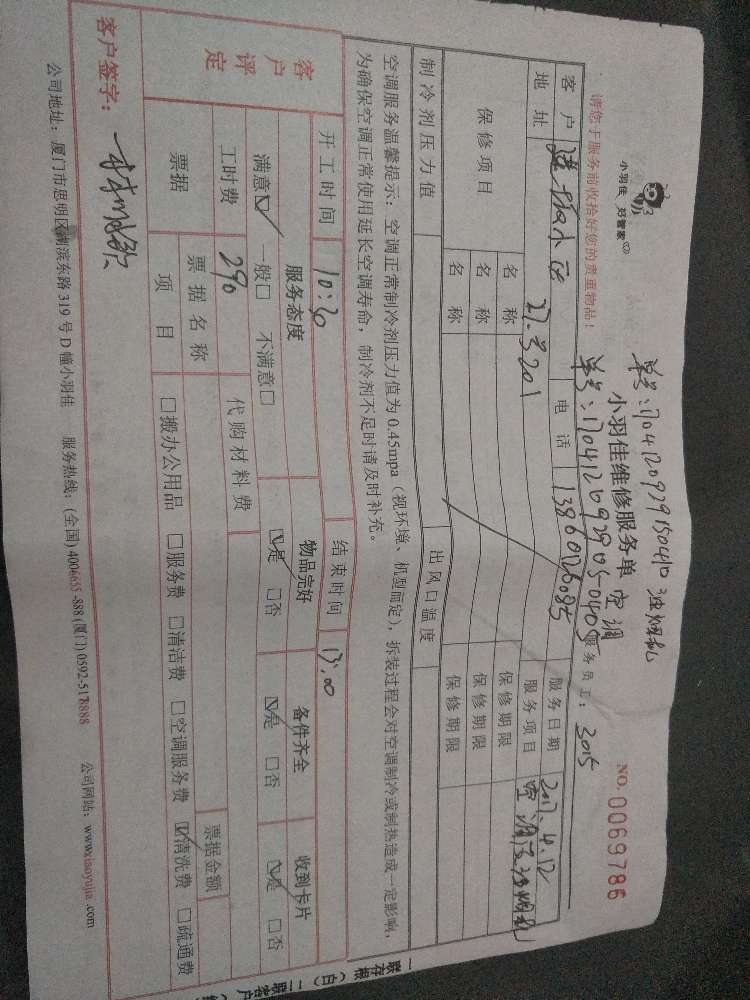 单号:170412092915041D 油烟机
小羽佳 好管家
小羽佳维修服务单
NO. 0069786
单号:170412092905040J 空调
服务员工: 3015
请您于服务前收拾好您的贵重物品!
客户地址
27号201
电话
13860126085
服务日期
2017.4.12
服务项目
空调及油烟机
保修项目
名称
保修期限
名称
保修期限
名称
保修期限
制冷剂压力值
出风口温度
空调服务温馨提示:空调正常制冷剂压力值为0.45mpa(视环境、机型而定),拆装过程会对空调制冷或制热造成一定影响,
为确保空调正常使用延长空调寿命,制冷剂不足时请及时补充。
开工时间 10:30 结束时间 13:00
客户评定
服务态度 物品完好 备件齐全 收到卡片
满意☑ 一般□ 不满意□ ☑是 □否 ☑是 □否 ☑是 □否
工时费 290 代购材料费
票据
票据名称 票据金额
项目 □搬办公用品 □服务费 □清洁费 □空调服务费 ☑清洗费 □疏通费
客户签字:
公司地址:厦门市思明区湖滨东路319号D幢小羽佳 服务热线:(全国) 4006655-888 (厦门) 0592-5178888 公司网站:www.xiaoyujia.com
一联存根(白) 二联客户